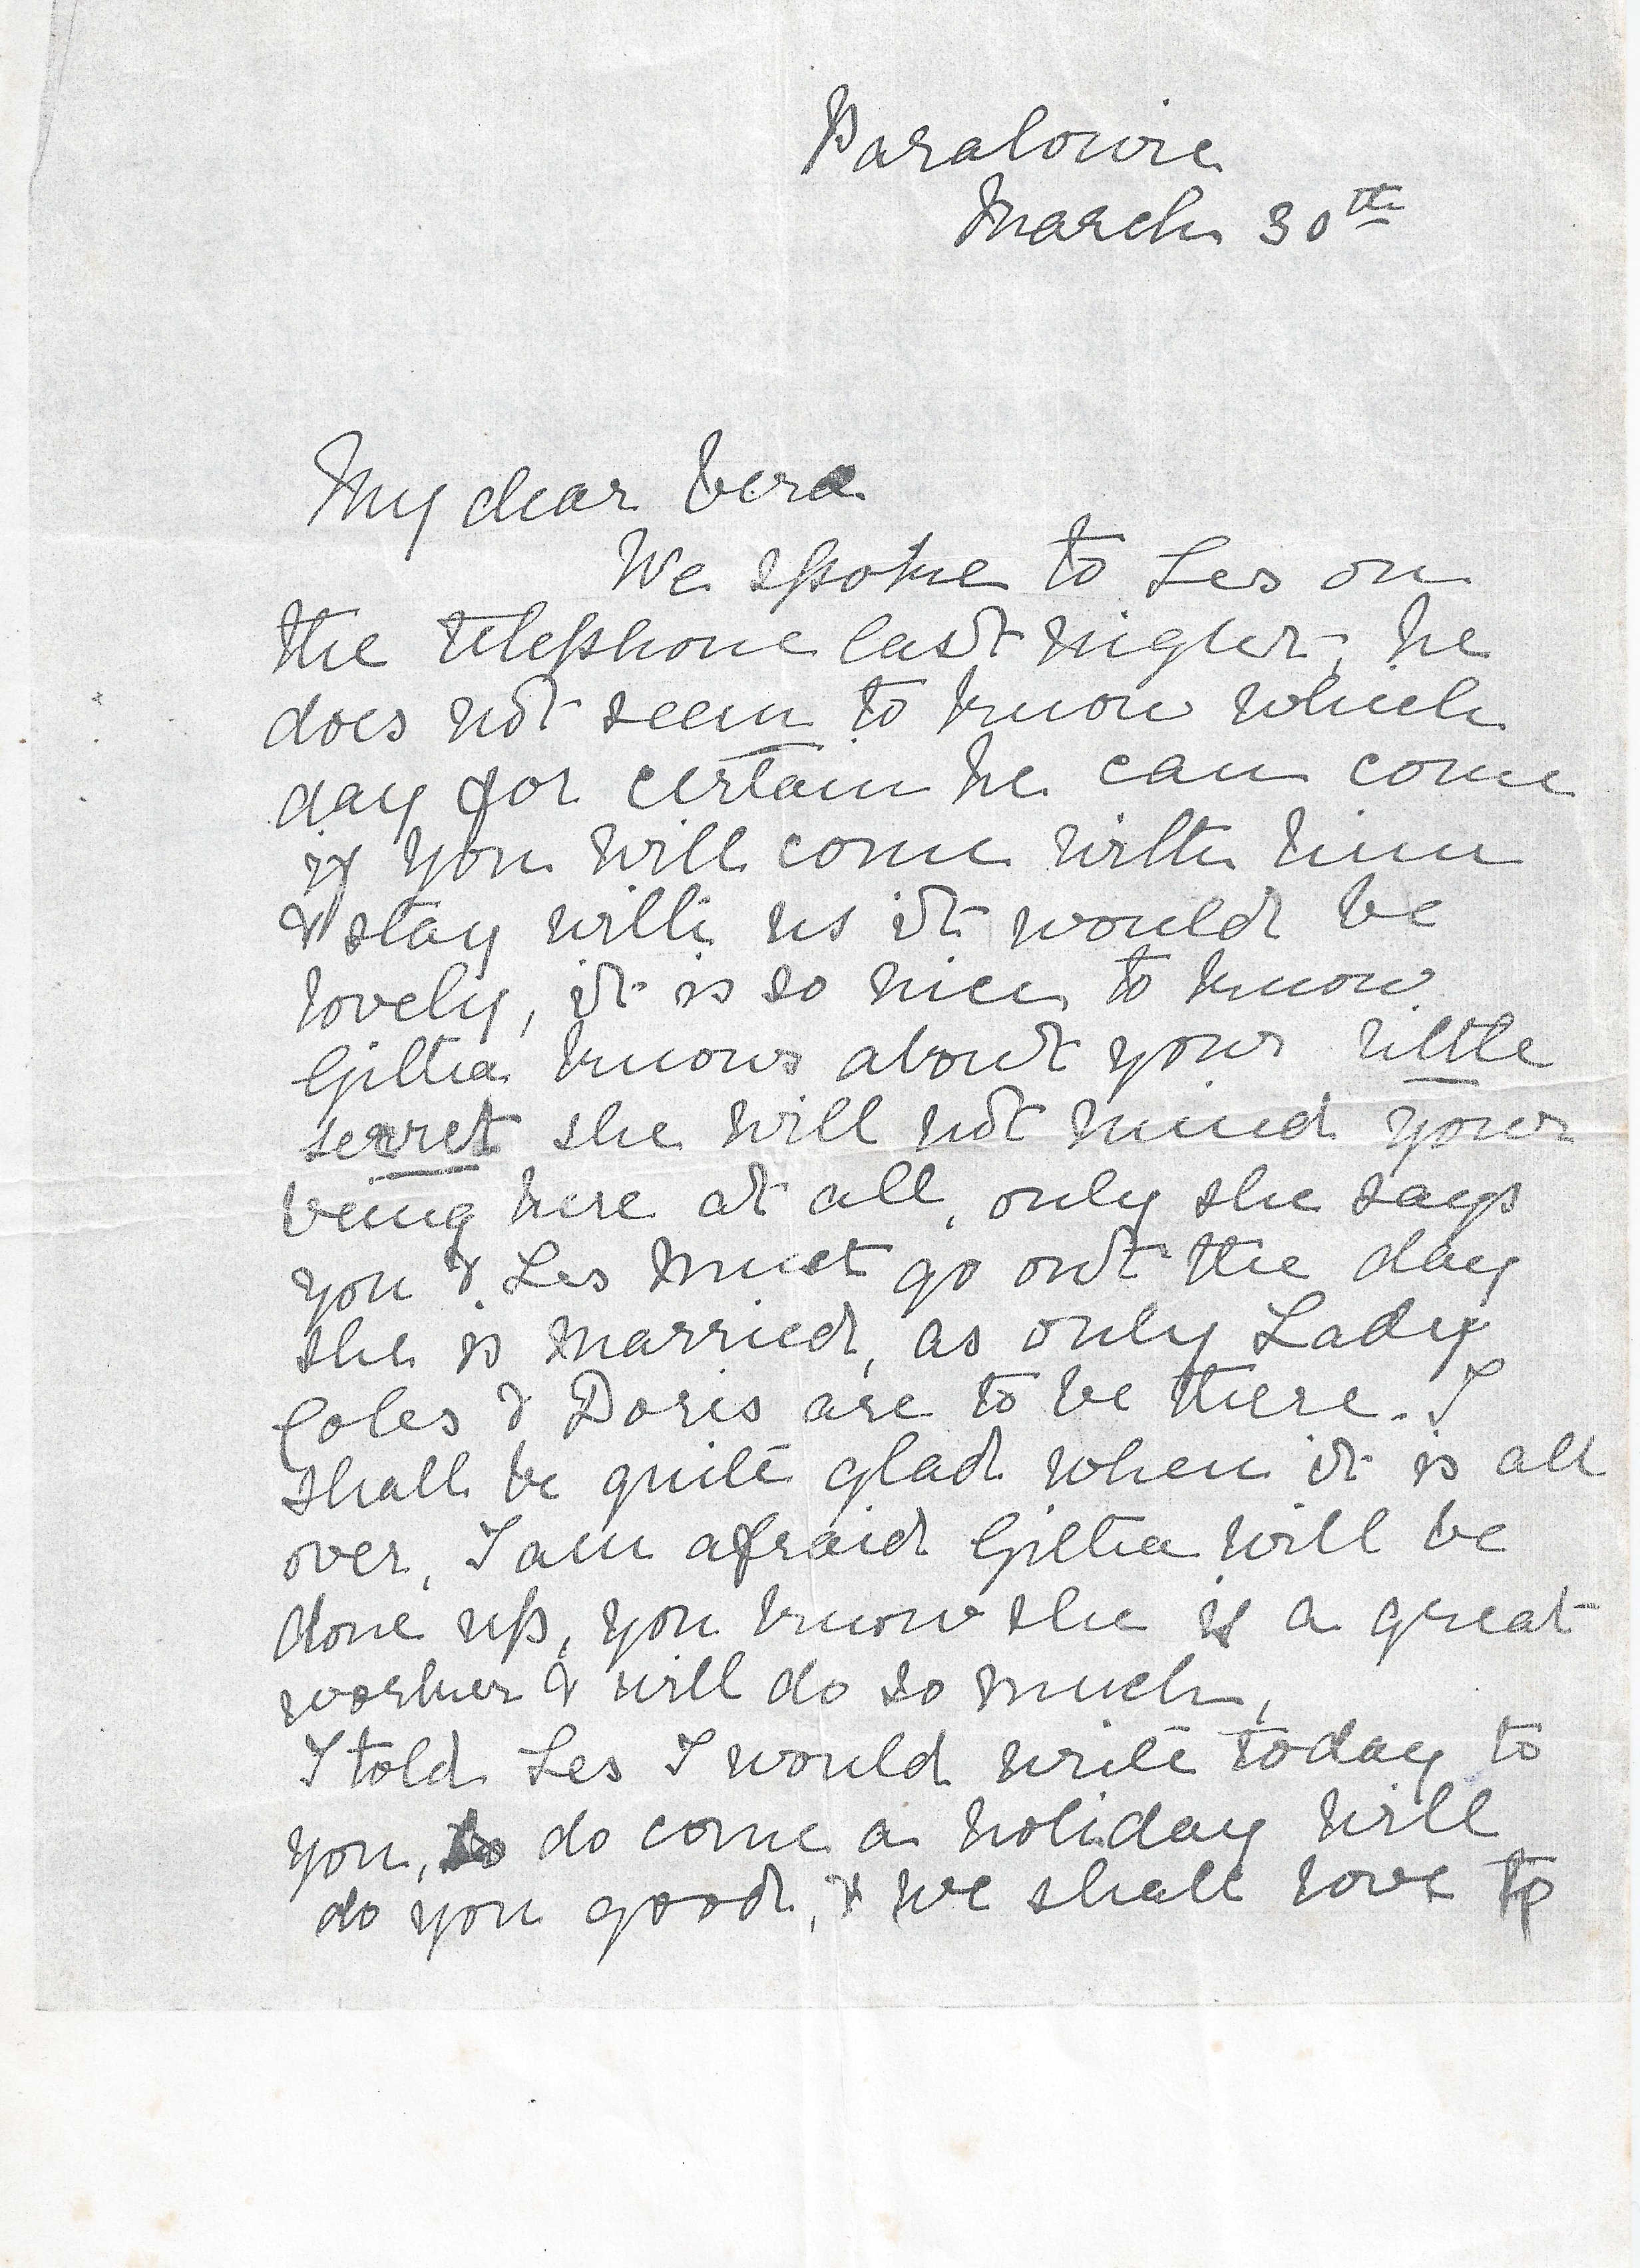 Paralowie
March 30th
My dear Vera
We spoke to Les on
the telephone last night, he
does not seem to know which
day for certain he can come
if you will come with him
& stay with us it would be
lovely, it is so nice to know
Giltha knows about your little
secret she will not mind your
being here at all, only she says
you & Les must go out the day
she is married, as only Lady
Coles & Doris are to be there. I
shall be quite glad when it is all
over, I am afraid Giltha will be
done up, you know she is a great
worker & will do so much,
I told Les I would write today to
you, so do come a holiday will
do you good, & we shall love to